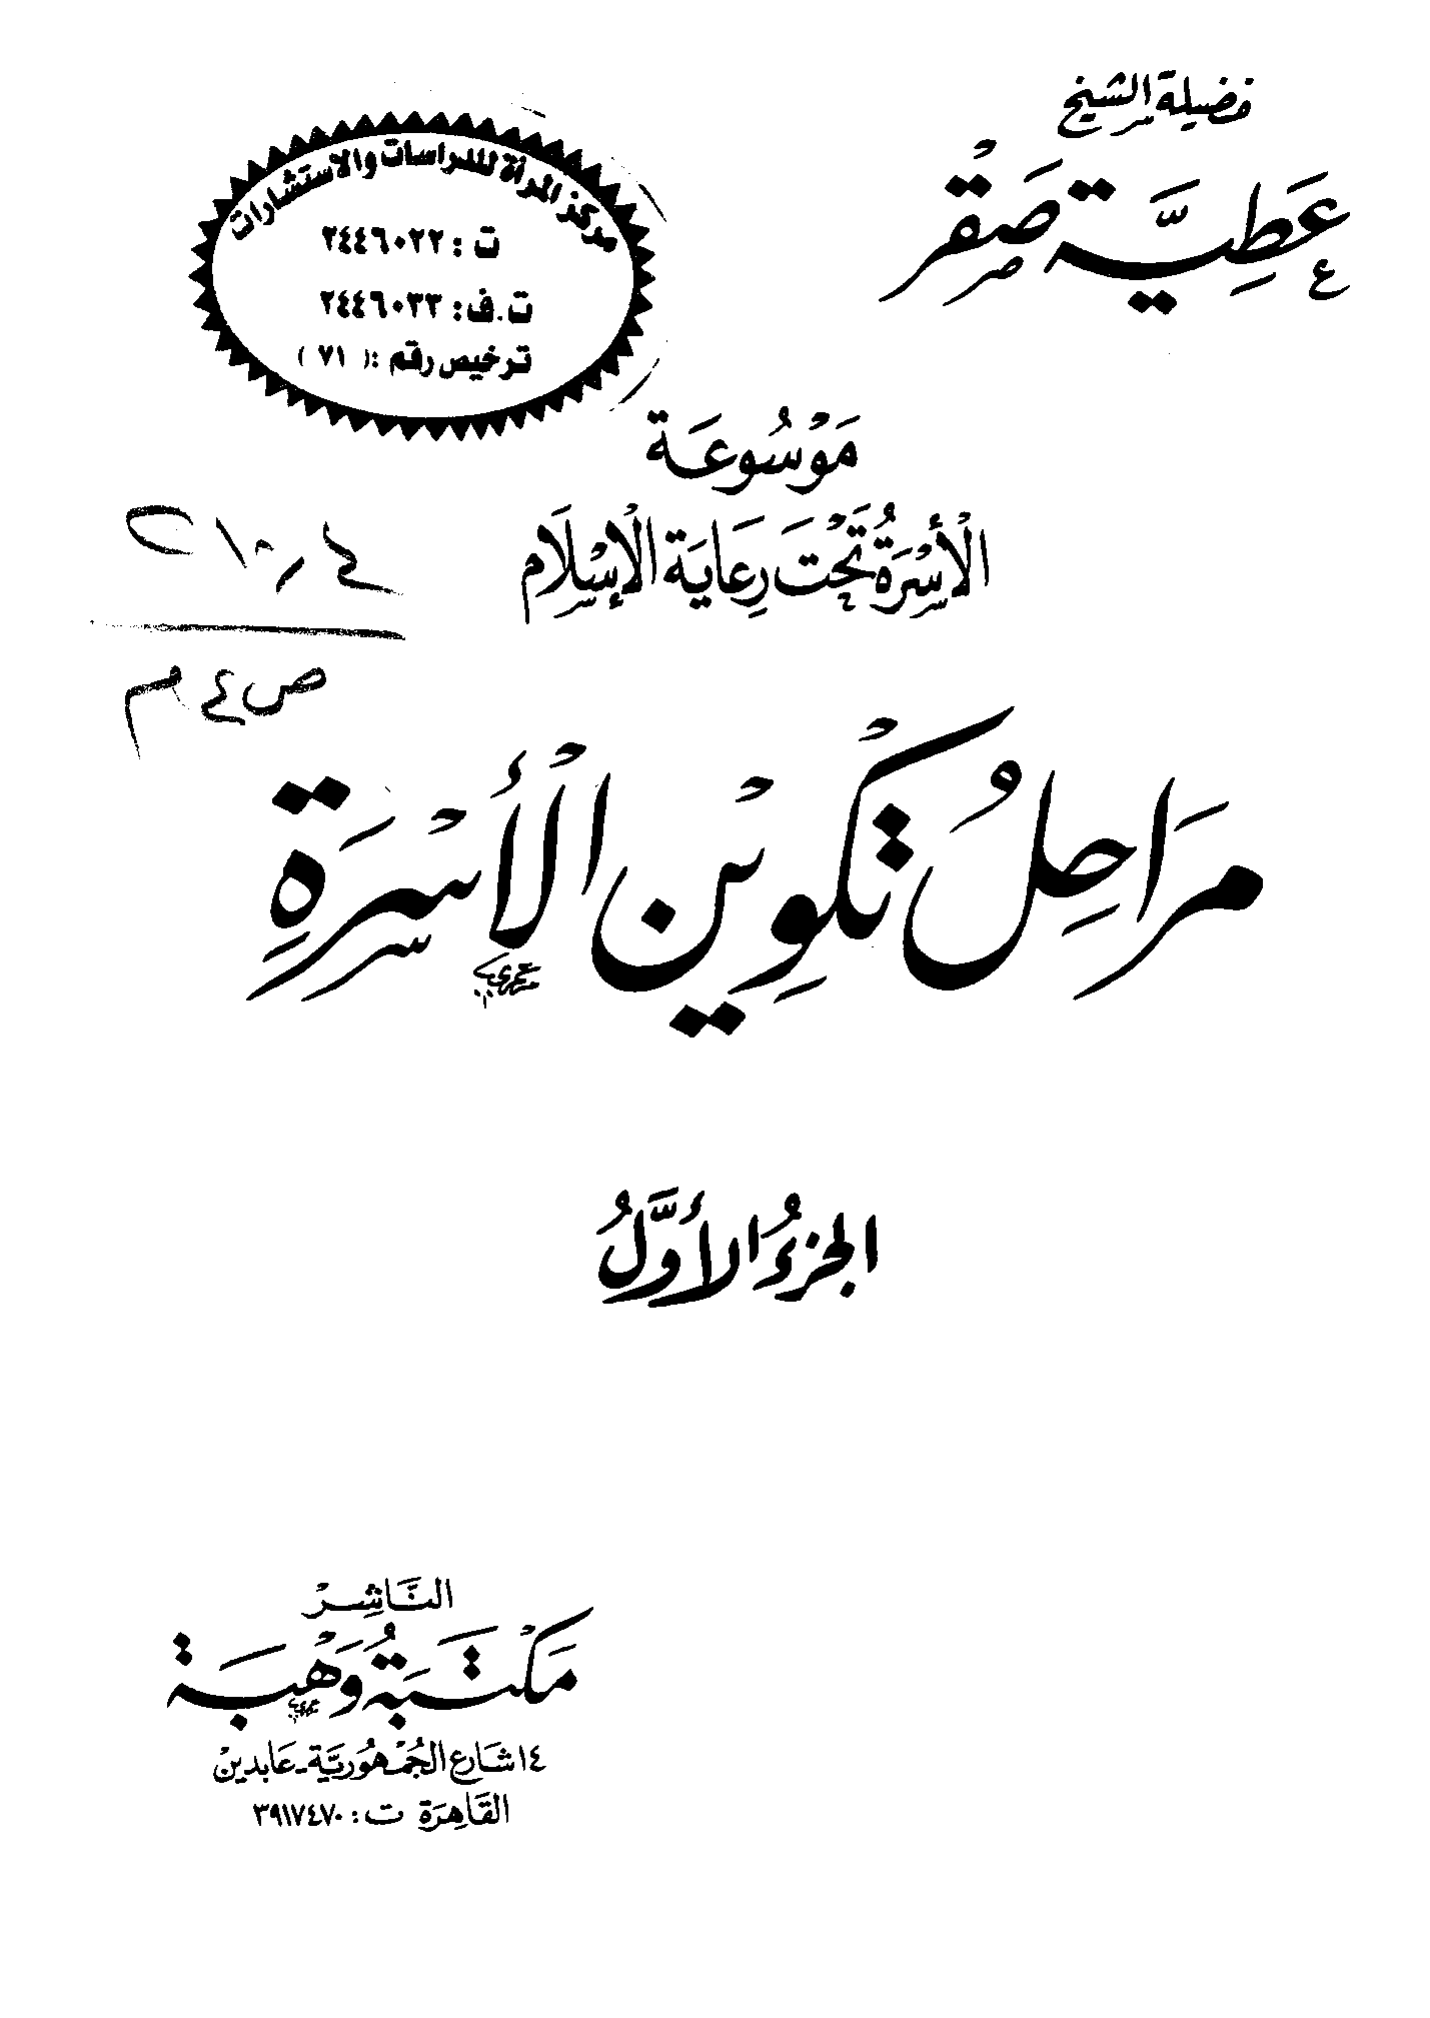 فضيلة الشيخ
عَطِيَّة صَقْر
مركز المرأة للدراسات والاستشارات
ت : ٢٤٤٦٠٢٢
ت.ف: ٢٤٤٦٠٣٣
ترخيص رقم :( ٧١ )
مَوْسُوعَة
الْأُسْرَةُ تَحْتَ رِعَايَة الْإِسْلَام
ص ٤ م
مَرَاحِلُ تكْوِيْن الْأُسْرَةِ
الجزءُ الأوَّلُ
النَّاشِرْ
مَكْتَبَةُ وَهْبَة
١٤ شَارع الجُمْهُوريَّة - عَابدينْ
القَاهِرَة ت : ٣٩١٧٤٧٠